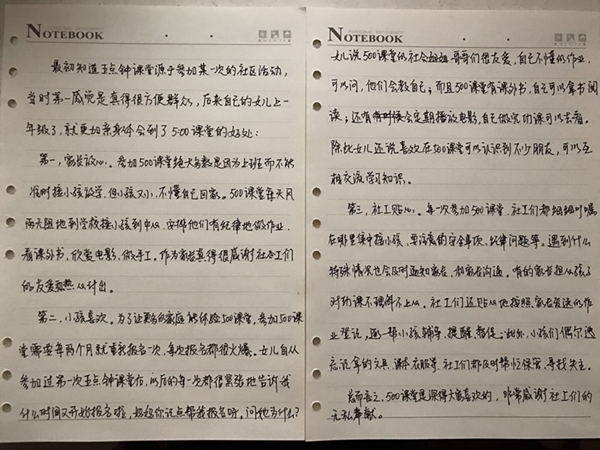 NOTEBOOK
最初知道五点钟课堂源于参加某一次的社区活动,
当时第一感觉是真得很方便群众,后来自己的女儿上一
年级了,就更加亲身体会到了5:00课堂的好处:
第一,家长放心。参加500课堂绝大多数是因为上班而不能
准时接小孩放学,但小孩又小,不懂自己回家。500课堂每天风
雨无阻地到学校接小孩到中心,安排他们有纪律地做作业、
看课外书,欣赏电影,做手工,作为家长真得很感谢社工们
的友爱 付出。
第二,小孩喜欢。为了让更多的家庭能体验500课堂,参加500课
堂需要每两个月就重新报名一次,每次报名都很火爆。女儿自从
参加过第一次五点钟课堂后,以后的每一次都很紧张地告诉我
什么时间又开始报名啦,妈妈你记点帮我报名呀。问他为什么?
NOTEBOOK
女儿说500课堂的社会姐姐哥哥们很友爱,自己不懂的作业,
可以问,他们会教自己;而且500课堂有课外书,自己可以拿书阅
读;还有 会定期播放电影,自己做完功课可以去看。
除此女儿还说喜欢在500课堂可以认识到不少朋友,可以互
相交流学习知识。
第三,社工贴心。每一次参加500课堂,社工们都细细叮嘱
在哪里集中接小孩,要注意的安全事项、纪律问题等。遇到什么
特殊情况也会及时通知家长,和家长沟通。有的家长担心孩子
对功课不理解不上心。社工们还贴心地按照家长发送的作
业登记,逐一帮小孩辅导、提醒、督促。此外,小孩们偶尔遗
忘说拿的文具、课本衣服等,社工们都及时帮忙保管、寻找失主。
总而言之,500课堂是深得大家喜欢的,非常感谢社工们的
无私奉献。